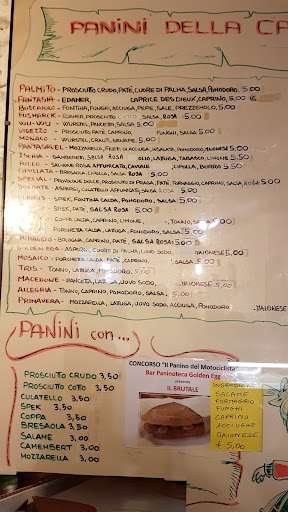 PANINI DELLA CA
PALMITO - PROSCIUTTO CRUDO, PATÈ, CUORE DI PALMA, SALSA, POMODORO, 5,00
FANTASIA - EDAMER, CAPRICE DES DIEUX, CAPRINO, 5,00
BOSCAINO - FONTINA, FUNGHI, ACCIUGA, PEPE, SALE, PREZZEMOLO, 5,00
BISMARCK - EDAMER, PROSCIUTTO COTTO, SALSA ROSA 5,00
WU-WU - WURSTEL, PANCETTA, SALSA 5,00
VIGEZZO - PROSCIUTTO, PATÈ, CAPRINO, FUNGHI, SALSA 5,00
MONACO - WURSTEL, CRAUTI, SENAPE 5,00
PANTAGRUEL - MOZZARELLA, FILETTI DI ACCIUGA, INSALATA, POMODORO, 5,00
ISCHIA - GAMBERETTI, SALSA ROSA OLIO, LATUGA, TABASCO, LIMONE 5,50
RICCO - SALMONE ROSSO AFFUMICATO, CAVIALE, CIPOLLA, BURRO 5,50
CIPOLLATA - BRESAOLA, CIPOLLA, SALSA ROSA 5,00
SPECIAL - PROVOLONE DOLCE, PROSCIUTTO DI PRAGA, PATÈ, FORMAGGIO, CAPRINO, SALSA ROSA 5,00
ASPARAGI, CULATELLO AFFUMICATO, SALSA ROSA 5,00
SPEK, FONTINA CALDA, POMODORO, SALSA 5,00
SPEK, PATÈ, SALSA ROSA 5,00
COPPA CALDA, CAPRINO, LIMONE, TONNO, SALSA 5,00
PORCHETTA CALDA, LATUGA, POMODORO, SALSA 5,00
MIRAGLIO - BOLOGNA, CAPRINO, PATÈ, SALSA ROSA 5,00
GOLDEN EGG - ASPARAGI, CUORE DI PALMA, UOVO SODO, MAIONESE 5,00
MOSAICO - PORCHETTA CALDA, PATÈ, CAPRINO, SALSA 5,00
TRIS - TONNO, LATUGA, POMODORO, 5,00
MACEDONE - PANCETTA, LATUGA, UOVO SODO, MAIONESE 5,00
ALLEGRIA - TONNO, CAPRINO, POMODORO, SALSA, 5,00
PRIMAVERA - MOZZARELLA, LATUGA, UOVO SODO, ACCIUGA, POMODORO MAIONESE
PANINI CON...
PROSCIUTTO CRUDO 3,50
PROSCIUTTO COTTO 3,50
CULATELLO 3,50
SPEK 3,50
COPPA 3,50
BRESAOLA 3,50
SALAME 3,00
CAMEMBERT 3,00
MOZZARELLA 3,00
CONCORSO "Il Panino del Motociclista"
Bar Paninoteca Golden Egg
presenta
IL BRUTALE
INGREDIENTI
SALAME
FORMAGGIO
FUNGHI
CAPRINO
ACCIUGHE
MAIONESE
€ 5,00